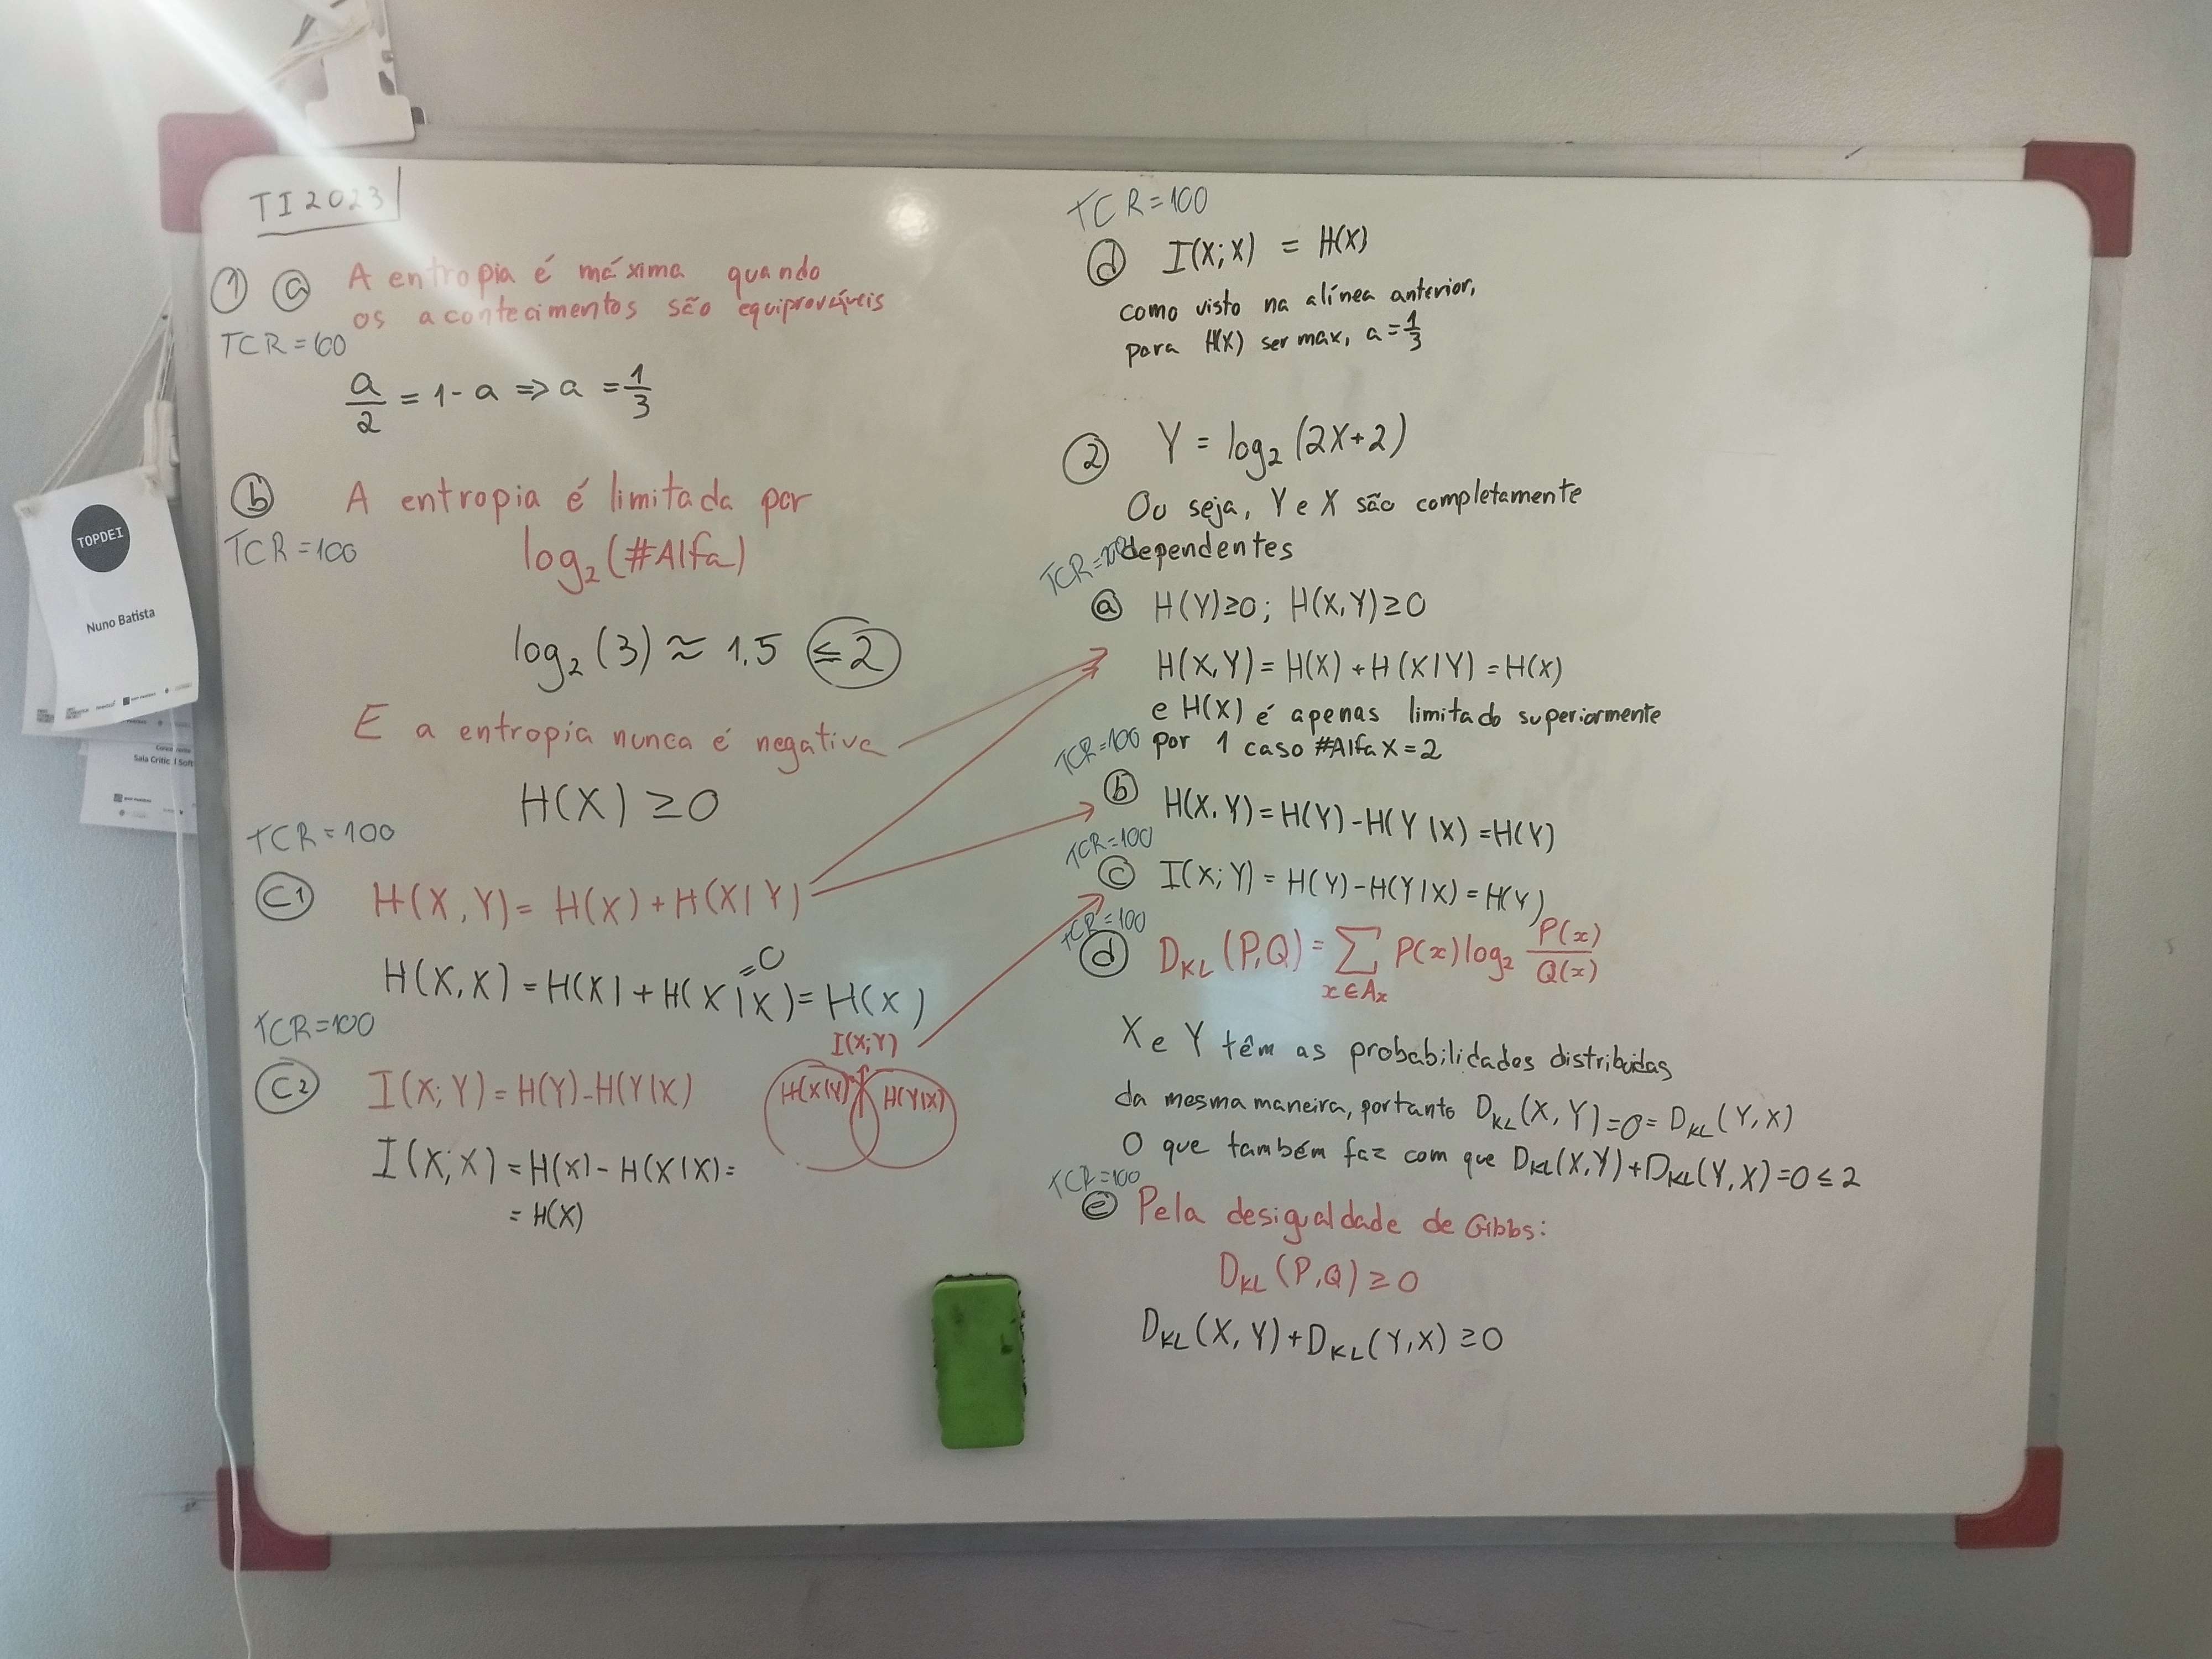 TI2023
① ⓐ A entropia é máxima quando
os acontecimentos são equiprováveis
TCR=100
a/2 = 1-a => a = 1/3
ⓑ A entropia é limitada por
TCR=100
log₂(#Alfa)
log₂(3) ≈ 1.5 ≤2
E a entropia nunca é negativa
H(X) ≥0
TCR=100
C1 H(X,Y)= H(X)+H(X|Y)
H(X,X)=H(X)+H(X|X)=H(X)
=0
TCR=100
C2 I(X;Y)=H(Y)-H(Y|X)
I(X;X)=H(X)-H(X|X)=
=H(X)
I(X;Y)
H(X|Y) H(Y|X)
TCR=100
ⓓ I(X;X) = H(X)
como visto na alínea anterior,
para H(X) ser max, a=1/3
② Y = log₂(2X+2)
Ou seja, Y e X são completamente
dependentes
TCR=100
ⓐ H(Y)≥0; H(X,Y)≥0
H(X,Y)=H(X)+H(X|Y)=H(X)
e H(X) é apenas limitado superiormente
por 1 caso #Alfa X=2
TCR=100
ⓑ H(X,Y)=H(Y)-H(Y|X)=H(Y)
TCR=100
ⓒ I(X;Y)=H(Y)-H(Y|X)=H(Y)
TCR=100
ⓓ D_KL(P,Q)=∑_{x∈A_x} P(x)log₂ P(x)/Q(x)
X e Y têm as probabilidades distribuidas
da mesma maneira, portanto D_KL(X,Y)=0=D_KL(Y,X)
O que também faz com que D_KL(X,Y)+D_KL(Y,X)=0≤2
TCR=100
ⓔ Pela desigualdade de Gibbs:
D_KL(P,Q)≥0
D_KL(X,Y)+D_KL(Y,X)≥0
TOPDEI
Nuno Batista